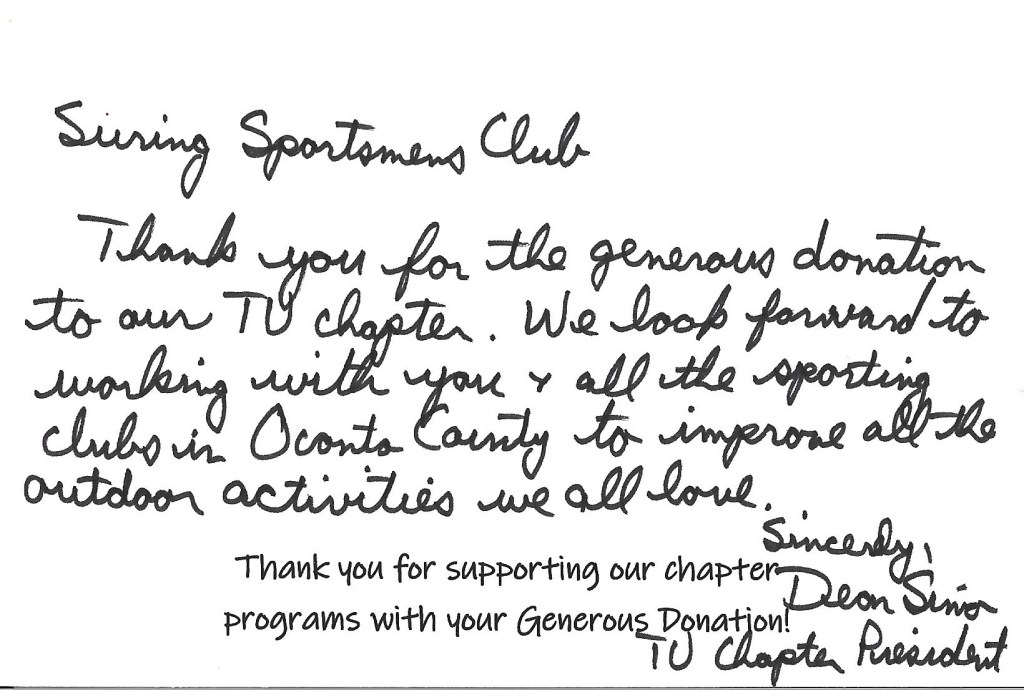 Suring Sportsmens Club
Thank you for the generous donation
to our TU chapter. We look forward to
working with you & all the sporting
clubs in Oconto County to improve all the
outdoor activities we all love.
Sincerely,
Thank you for supporting our chapter
Dean
programs with your Generous Donation!
TU Chapter President